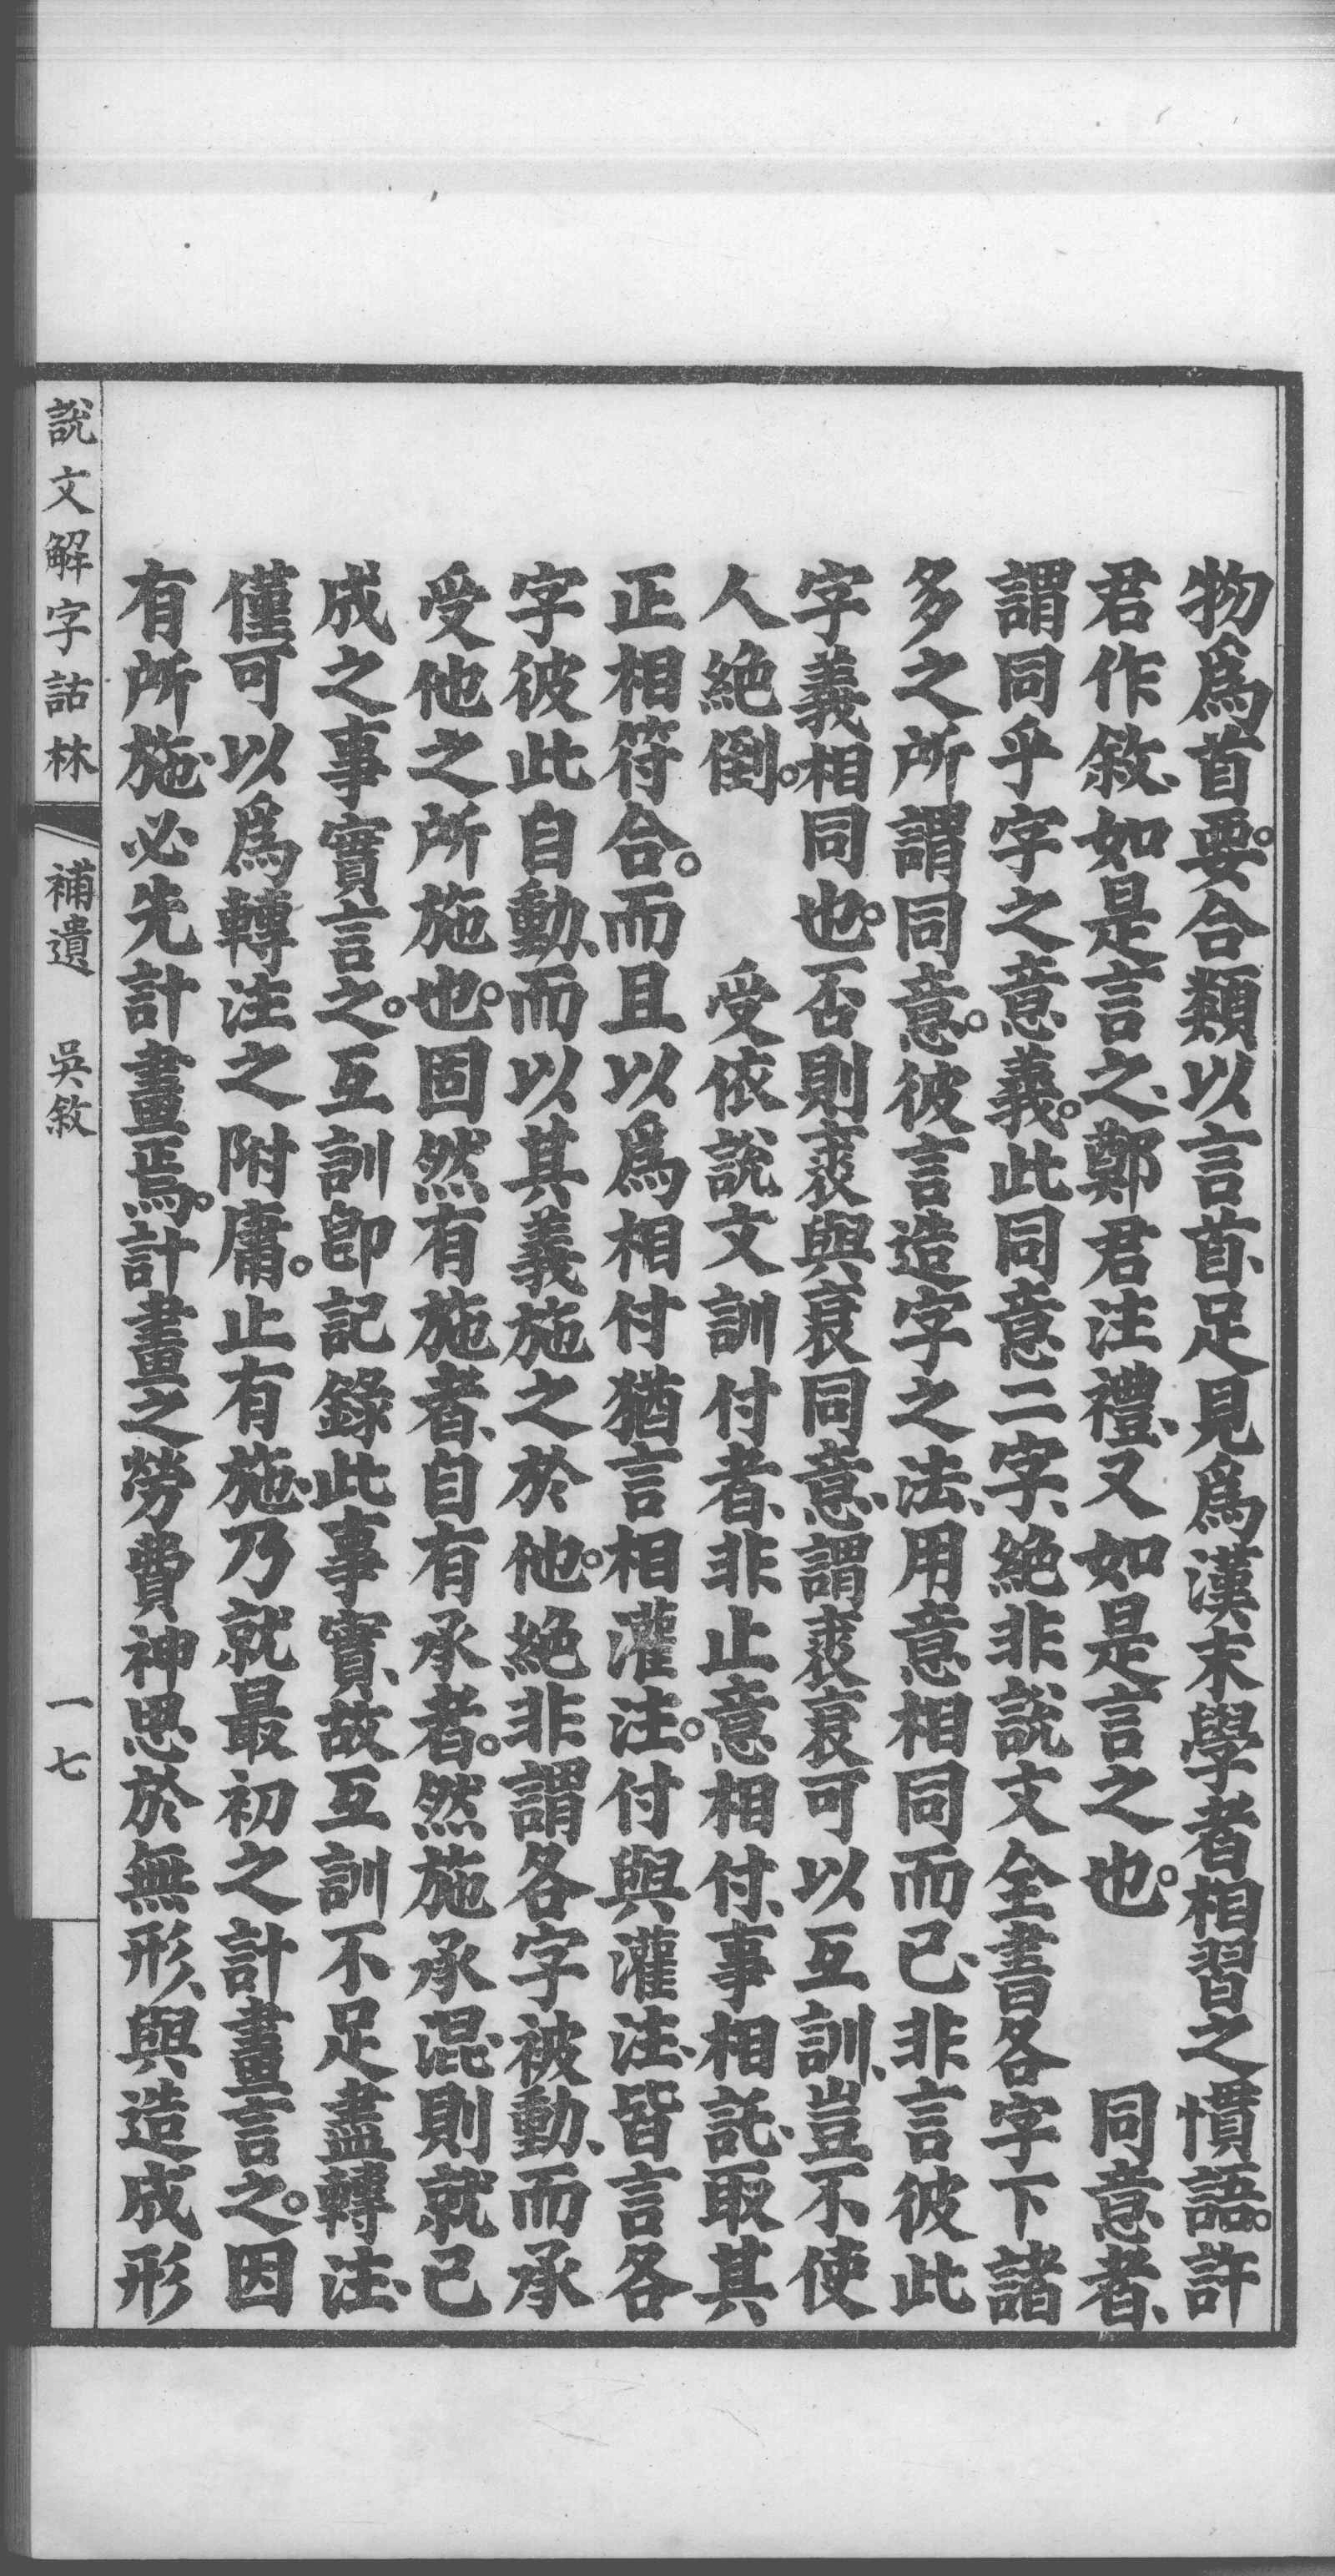 物、爲首。要合類以言首、足見爲漢末學者相習之慣語。許
君作敘、如是言之、鄭君注禮、又如是言之也。　同意者、
謂同乎字之意義。此同意二字、絶非說文全書各字下諸
多之所謂同意。彼言造字之法、用意相同而已、非言彼此
字義相同也。否則裘與衰同意、謂裘衰可以互訓、豈不使
人絶倒。　受依說文訓付者、非止意相付、事相託、取其
正相符合。而且以爲相付猶言相灌注。付與灌注、皆言各
字彼此自動、而以其義施之於他。絶非謂各字被動、而承
受他之所施也。固然有施者、自有承者。然施承混、則就已
成之事實言之。互訓卽記錄此事實、故互訓不足盡轉注、
僅可以爲轉注之附庸。止有施、乃就最初之計畫言之。因
有所施、必先計畫焉。計畫之勞費神思於無形、與造成形
說文解字詁林
補遺　吳敘
一七